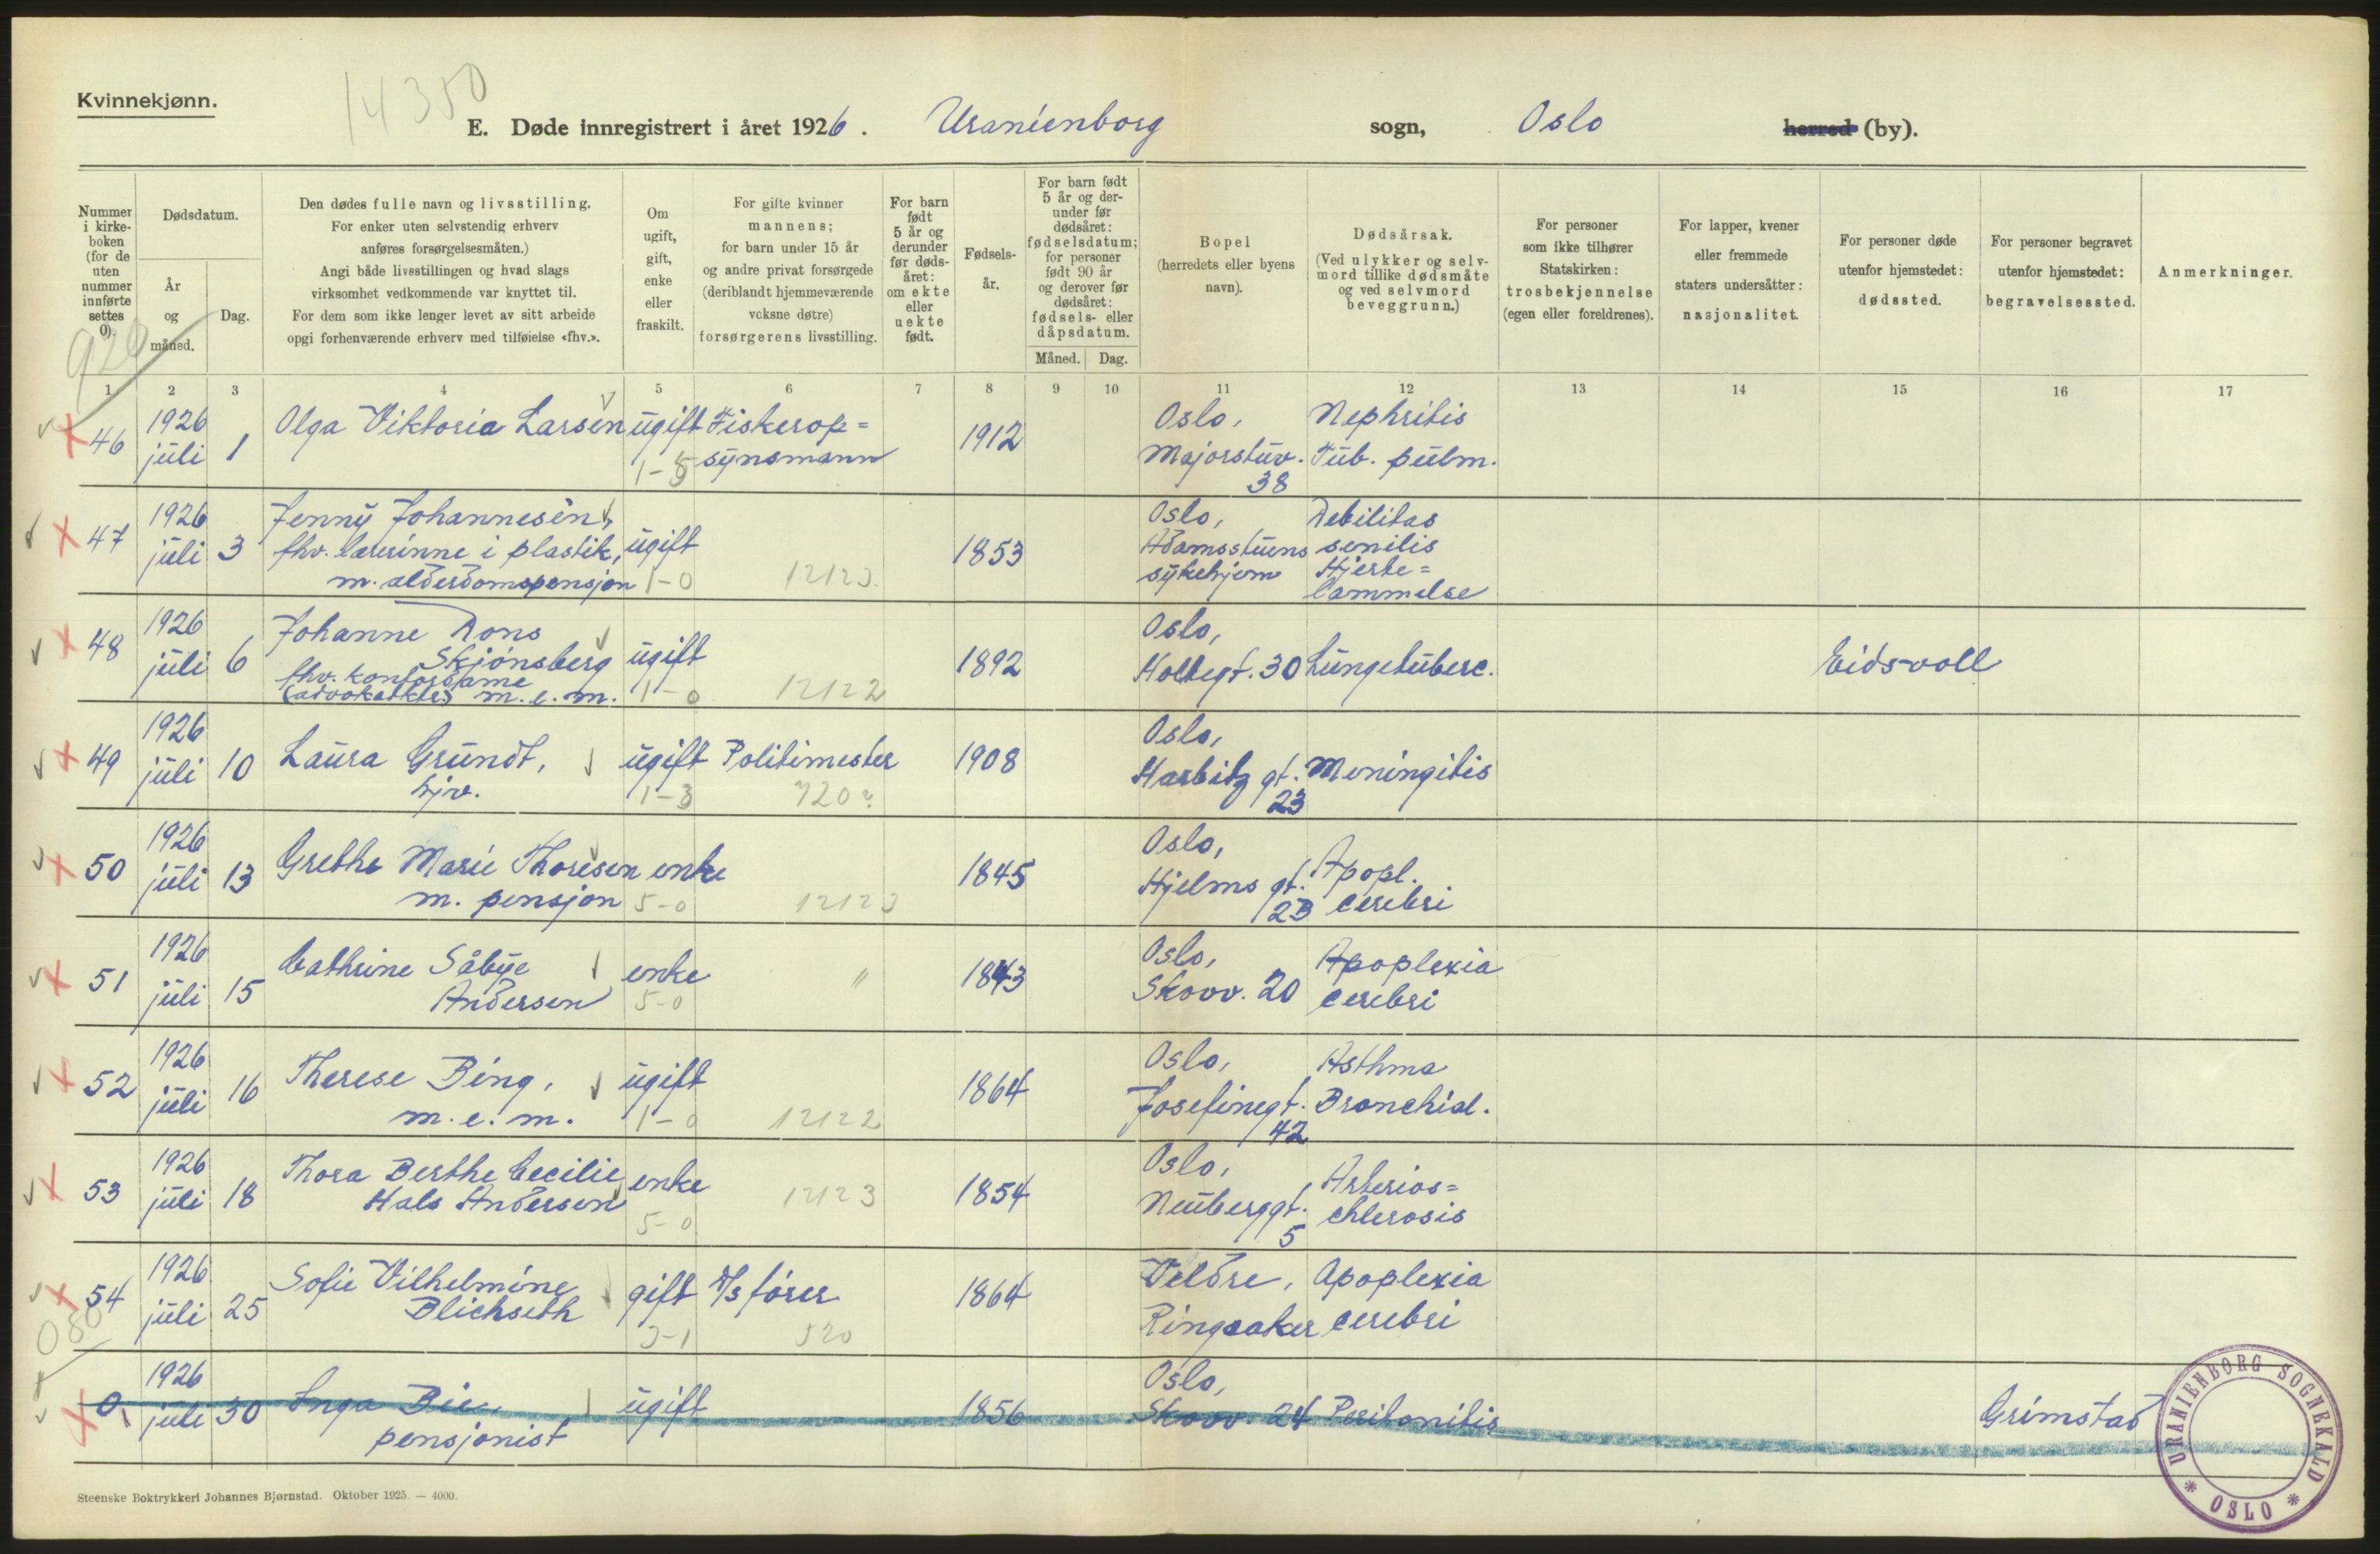 Kvinnekjønn.
14350
E. Døde innregistrert i året 1926. Uranienborg sogn, Oslo herred (by).
Nummer i kirke-boken (for de uten nummer innførte settes 0).
Dødsdatum.
År og måned.
Dag.
Den dødes fulle navn og livsstilling.
For enker uten selvstendig erhverv
anføres forsørgelsesmåten.)
Angi både livsstillingen og hvad slags
virksomhet vedkommende var knyttet til.
For dem som ikke lenger levet av sitt arbeide
opgi forhenværende erhverv med tilføielse «fhv.».
Om
ugift,
gift,
enke
eller
fraskilt.
For gifte kvinner
mannens;
for barn under 15 år
og andre privat forsørgede
(deriblandt hjemmeværende
voksne døtre)
forsørgerens livsstilling.
For barn
født
5 år og
derunder
før døds-
året:
om ekte
eller
uekte
født.
Fødsels-
år.
For barn født
5 år og der-
under før
dødsåret:
fødselsdatum;
for personer
født 90 år
og derover før
dødsåret:
fødsels- eller
dåpsdatum.
Måned. Dag.
Bopel
(herredets eller byens
navn).
Dødsårsak.
(Ved ulykker og selv-
mord tillike dødsmåte
og ved selvmord
beveggrunn.)
For personer
som ikke tilhører
Statskirken:
trosbekjennelse
(egen eller foreldrenes).
For lapper, kvener
eller fremmede
staters undersåtter:
nasjonalitet.
For personer døde
utenfor hjemstedet:
dødssted.
For personer begravet
utenfor hjemstedet:
begravelsessted.
Anmerkninger.
1 2 3 4 5 6 7 8 9 10 11 12 13 14 15 16 17
46 1926 juli 1 Olga Viktoria Larsen ugift Fiskerop=
synsmann 1912 Oslo, Majorstuv. 38 Nephritis
Tub. pulm.
1-5
47 1926 juli 3 Jenny Johannesen,
fhv. lærerinne i plastik,
m. alderdomspensjon ugift 1853 Oslo,
Adamsstuens
sykehjem Debilitas
senilis
Hjerte=
lammelse
1-0 12123
48 1926 juli 6 Johanne Dons
Skjønsberg
fhv. kontordame
(advokatktr.) m.e.m. ugift 1892 Oslo,
Holtegt. 30 Lungetuberc. Eidsvoll
1-0 12122
49 1926 juli 10 Laura Grundt,
hjv. ugift Politimester 1908 Oslo,
Harbitz gt.
23 Meningitis
1-3 720?
50 1926 juli 13 Grethe Marie Thoresen
m. pensjon enke 1845 Oslo,
Hjelms gt.
23 Apopl.
cerebri
5-0 12123
51 1926 juli 15 Cathrine Såbye
Andersen enke 1843 Oslo,
Skovv. 20 Apoplexia
cerebri
5-0 "
52 1926 juli 16 Therese Bing,
m.e.m. ugift 1864 Oslo,
Josefinegt.
42 Asthma
Bronchial.
1-0 12122
53 1926 juli 18 Thora Berthe Cecilie
Hals Andersen enke 1854 Oslo,
Neuberggt.
5 Arterios=
chlerosis
5-0 12123
54 1926 juli 25 Sofie Vilhelmine
Blichseth gift D/s fører 1864 Veldre,
Ringsaker Apoplexia
cerebri
3-1 520
0, 1926 juli 30 Inga Bie,
pensjonist ugift 1856 Oslo,
Skovv. 24 Peritonitis Grimstad
URANIENBORG SOGNEKALD
* OSLO *
Steenske Boktrykkeri Johannes Bjørnstad. Oktober 1925. — 4000.